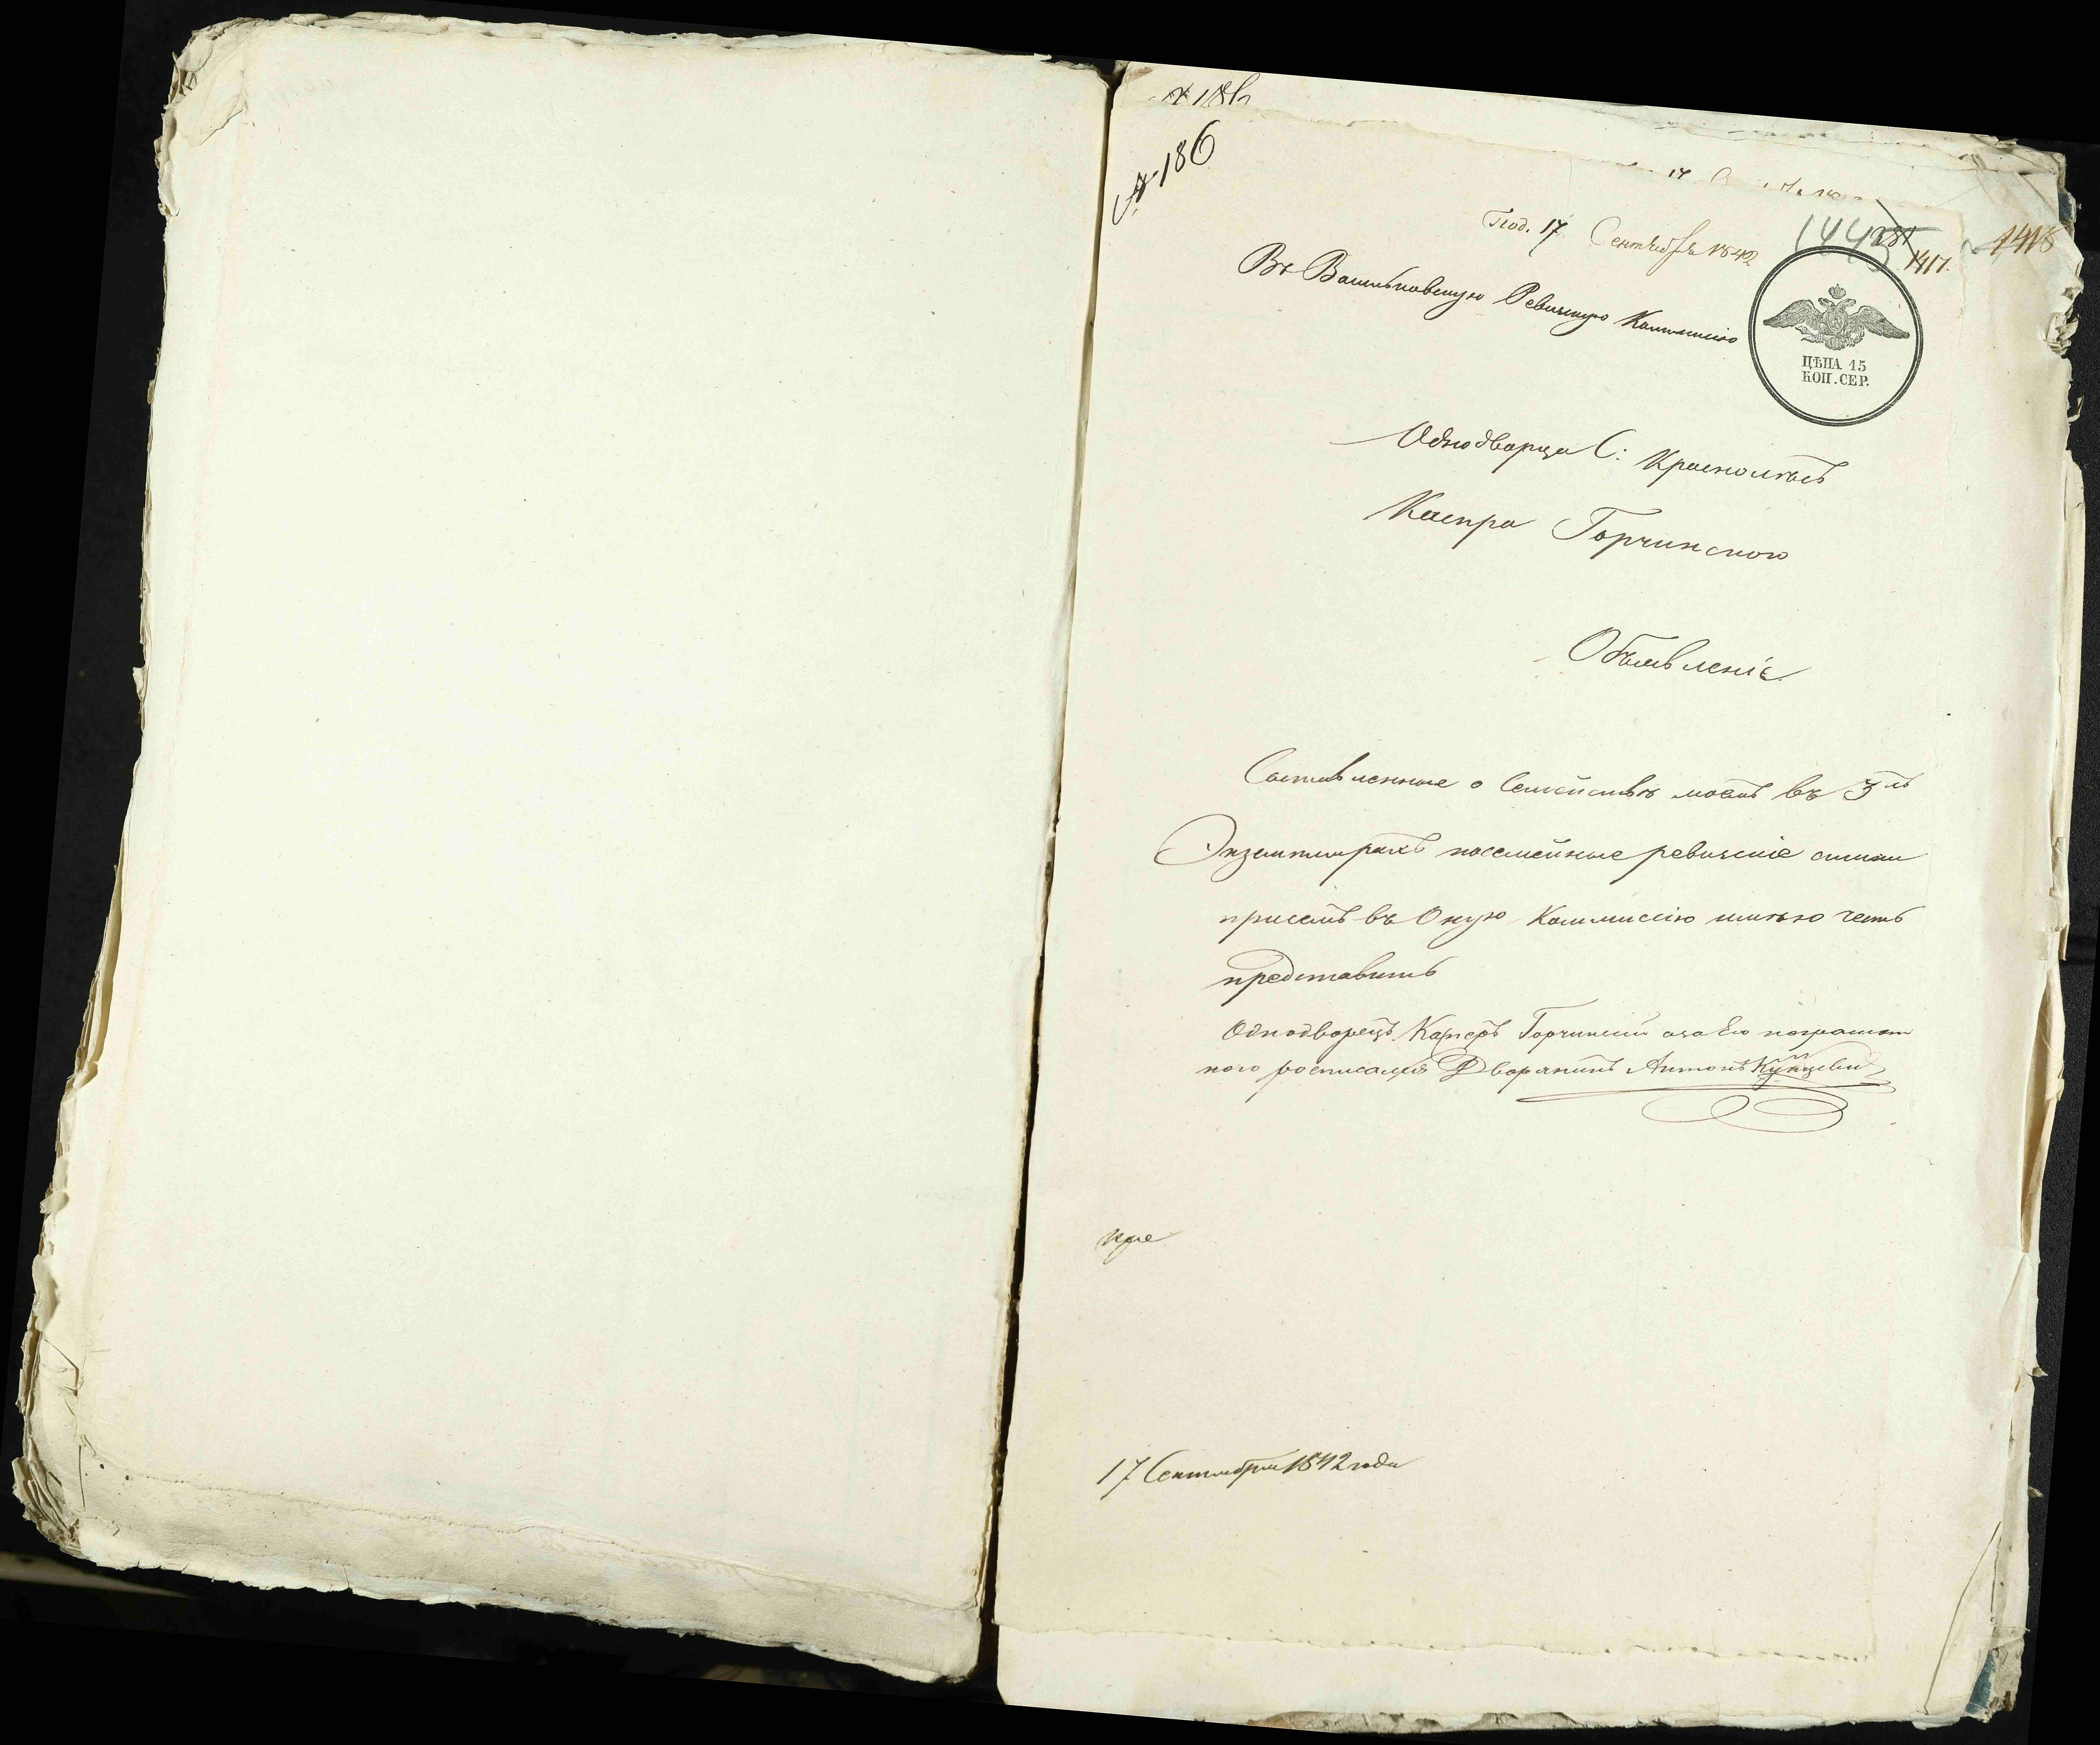 № 186
№ 186
Под. 17 Сентября 1842
1443 1417. 1418
Въ Васильковскую Ревизскую Коммисію
ЦѢНА 15
КОП. СЕР.
Однодворца С: Краснолѣсъ
Каспра Горчинского
Объявленіе
Составленные о Семействѣ моемъ въ 3хъ
Экземплярахъ посемейные ревизскіе сказки
присемъ въ Оную Коммиссію имѣю честь
представить
Однодворецъ Касперъ Горчинскій азаЕго неграмот
ного росписался Дворянинъ Антонъ
17 Сентября 1842 года